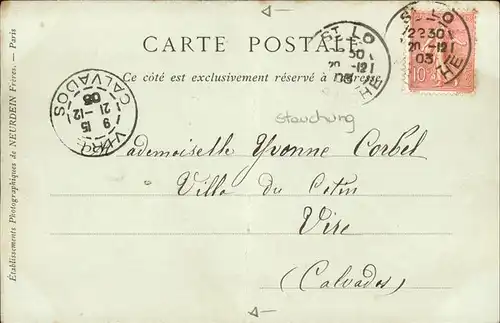 CARTE POSTALE
Ce côté est exclusivement réservé à l'adresse
ST LO
22 30
20 -12
03
CHE
ST LO
22 30
20 -12
03
CHE
10
VIRE
9 15
21 -12
03
CALVADOS
Stauchung
Mademoiselle Yvonne Corbel
Villa du Cotin
Vire
(Calvados)
Établissements Photographiques de NEURDEIN Frères. — Paris